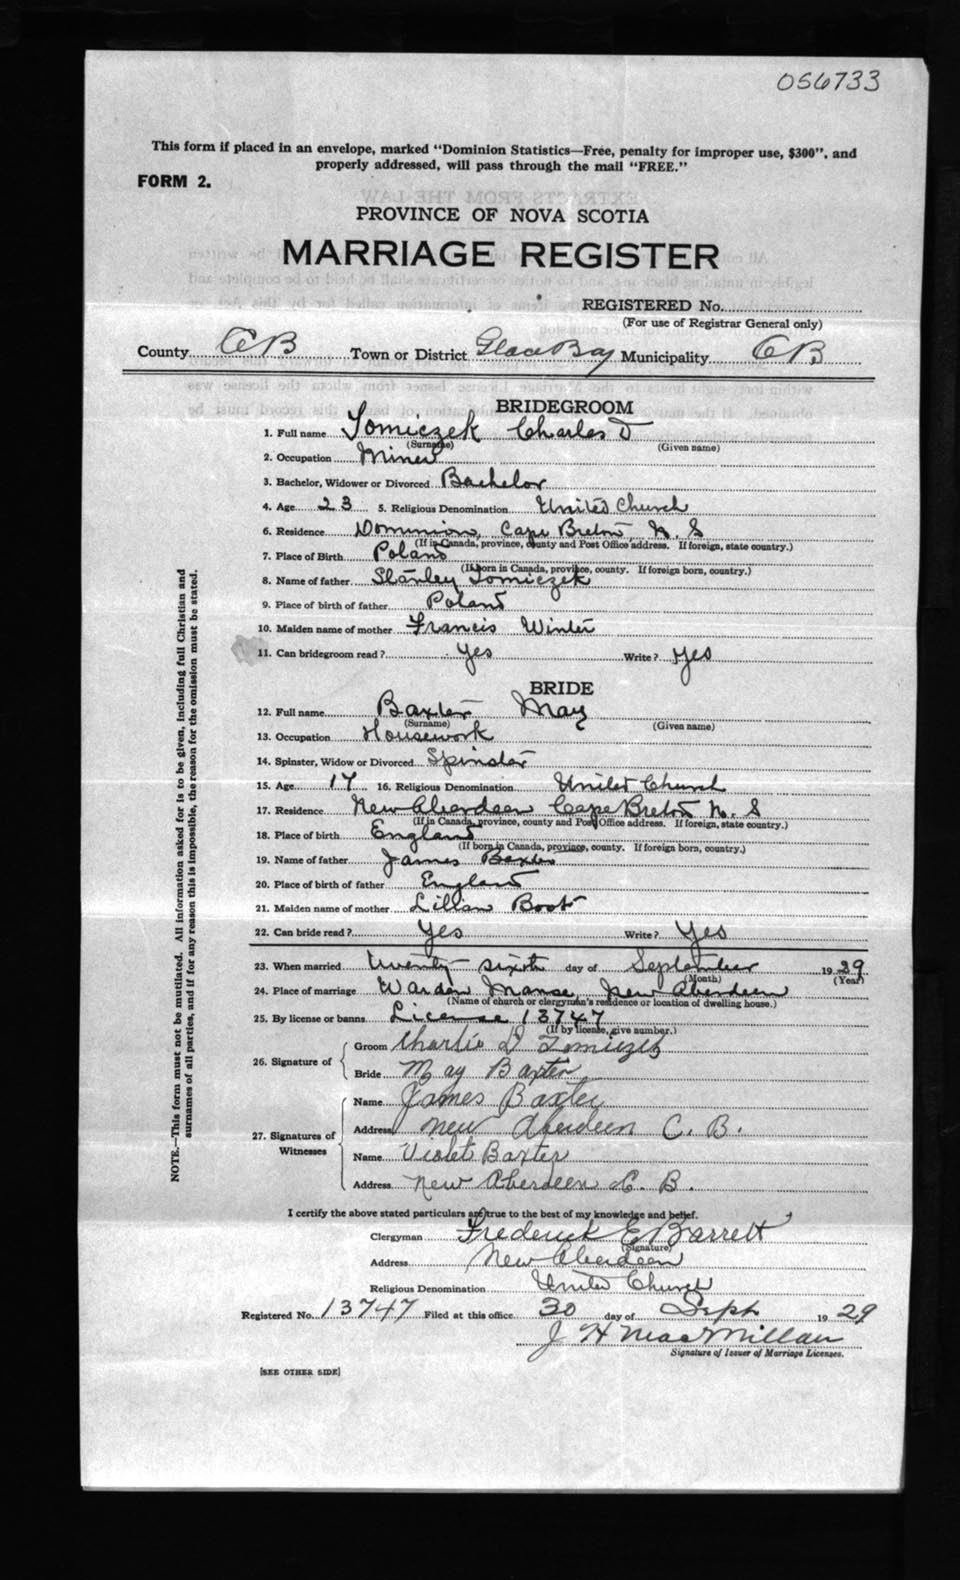 056733
This form if placed in an envelope, marked "Dominion Statistics—Free, penalty for improper use, $300", and
properly addressed, will pass through the mail "FREE."
FORM 2.
PROVINCE OF NOVA SCOTIA
MARRIAGE REGISTER
REGISTERED No.
(For use of Registrar General only)
County CB Town or District Glace Bay Municipality CB
BRIDEGROOM
1. Full name Tomiczek Charles D
(Surname) (Given name)
2. Occupation Miner
3. Bachelor, Widower or Divorced Bachelor
4. Age 23 5. Religious Denomination United Church
6. Residence Dominion, Cape Breton N. S
(If in Canada, province, county and Post Office address. If foreign, state country.)
7. Place of Birth Poland
(If born in Canada, province, county. If foreign born, country.)
8. Name of father Stanley Tomiczek
9. Place of birth of father Poland
10. Maiden name of mother Francis Winter
11. Can bridegroom read? Yes Write? Yes
BRIDE
12. Full name Baxter May
(Surname) (Given name)
13. Occupation Housework
14. Spinster, Widow or Divorced Spinster
15. Age 17 16. Religious Denomination United Church
17. Residence New Aberdeen Cape Breton N. S
(If in Canada, province, county and Post Office address. If foreign, state country.)
18. Place of birth England
(If born in Canada, province, county. If foreign born, country.)
19. Name of father James Baxter
20. Place of birth of father England
21. Maiden name of mother Lillian Boot
22. Can bride read? Yes Write? Yes
23. When married twenty sixth day of September 1929
(Month) (Year)
24. Place of marriage Warden Manse, New Aberdeen
(Name of church or clergyman's residence or location of dwelling house.)
25. By license or banns License 13747
(If by license, give number.)
26. Signature of Groom Charlie D Tomiczek
Bride May Baxter
27. Signatures of Witnesses Name James Baxter
Address New Aberdeen C. B.
Name Violet Baxter
Address New Aberdeen C. B.
I certify the above stated particulars are true to the best of my knowledge and belief.
Clergyman Frederick E Barrett
(Signature)
Address New Aberdeen
Religious Denomination United Church
Registered No. 13747 Filed at this office 30 day of Sept 1929
J H MacMillan
Signature of Issuer of Marriage Licenses.
[SEE OTHER SIDE]
NOTE.—This form must not be mutilated. All information asked for is to be given, including full Christian and
surnames of all parties, and if for any reason this is impossible, the reason for the omission must be stated.